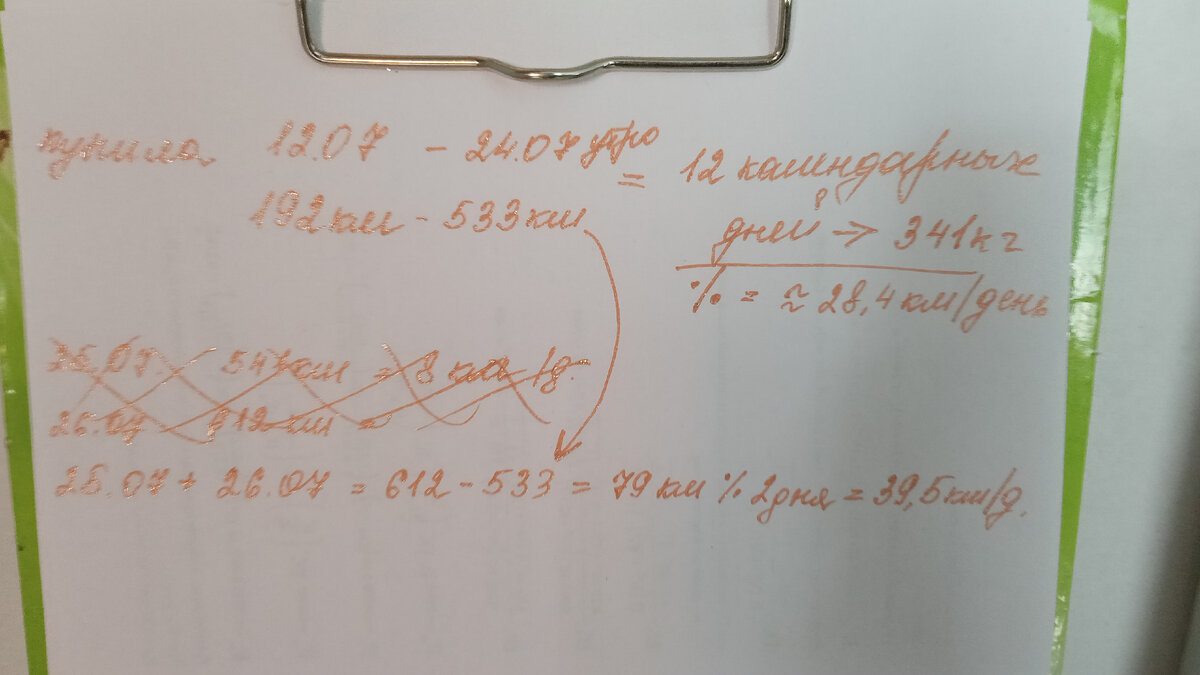 купила 12.07 - 24.07 утро = 12 календарных
192 км - 533 км дней → 341 кг
% = ≈ 28,4 км/день
25.07. 541 км = 8 км 1д.
26.07 612 км =
25.07 + 26.07 = 612 - 533 = 79 км % 2 дня = 39,5 км/д.